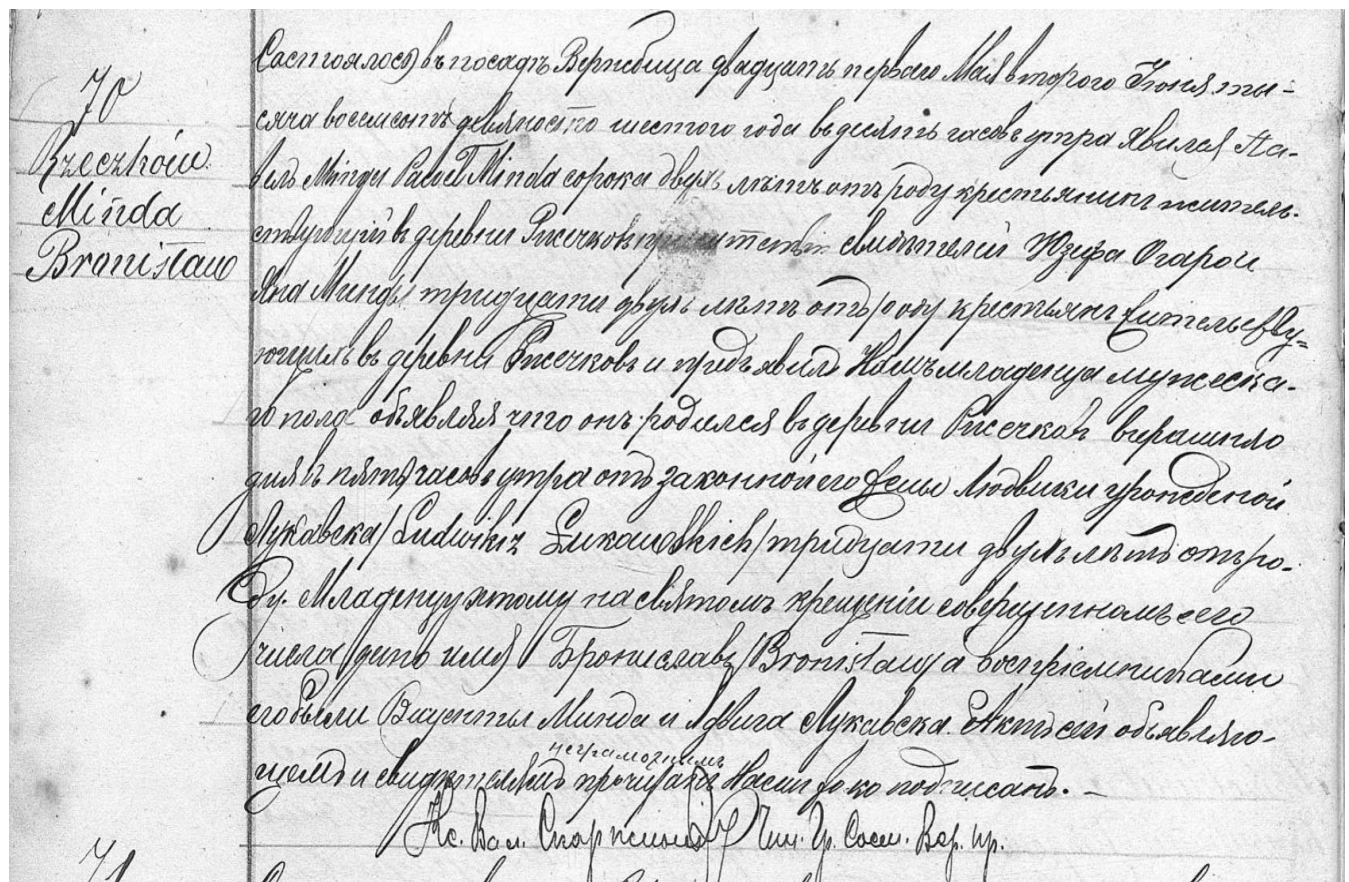 70
Rzeczków.
Minda
Bronisław
Состоялось въ посадѣ Вержбица двадцать перваго Мая второго Іюня ты-
сяча восемсотъ девяносто шестого года въ десять часовъ утра явился Па-
велъ Минда Paweł Minda сорока двухъ лѣтъ отъ роду крестьянинъ житель-
ствующій въ деревни Ржечковъ свидѣтелей Юзефа Огарои
Яна Минды тридцати двухъ лѣтъ отъ роду крестьянъ жительству-
ющихъ въ деревни Ржечковъ и предъявилъ Намъ младенца мужеска-
го пола объявляя что онъ родился въ деревни Ржечковъ вчерашнло
дня въ пять часовъ утра отъ законной его жены Людвики урожденой
Лукавска /Ludwika Łukawskich/ тридцати двухъ лѣтъ отъ ро-
ду. Младенцу этому на святомъ крещеніи совершенномъ сего
числа дано имя Брониславъ /Bronisław/ а воспріемниками
его были Винценты Минда и Ядвига Лукавска. Актъ сей объявляю-
щему и свидѣтелямъ неграмотнымъ прочитанъ Нами подписанъ. –
Кс. Вал. Чин. Гр. Сост. Вер. пр.
71